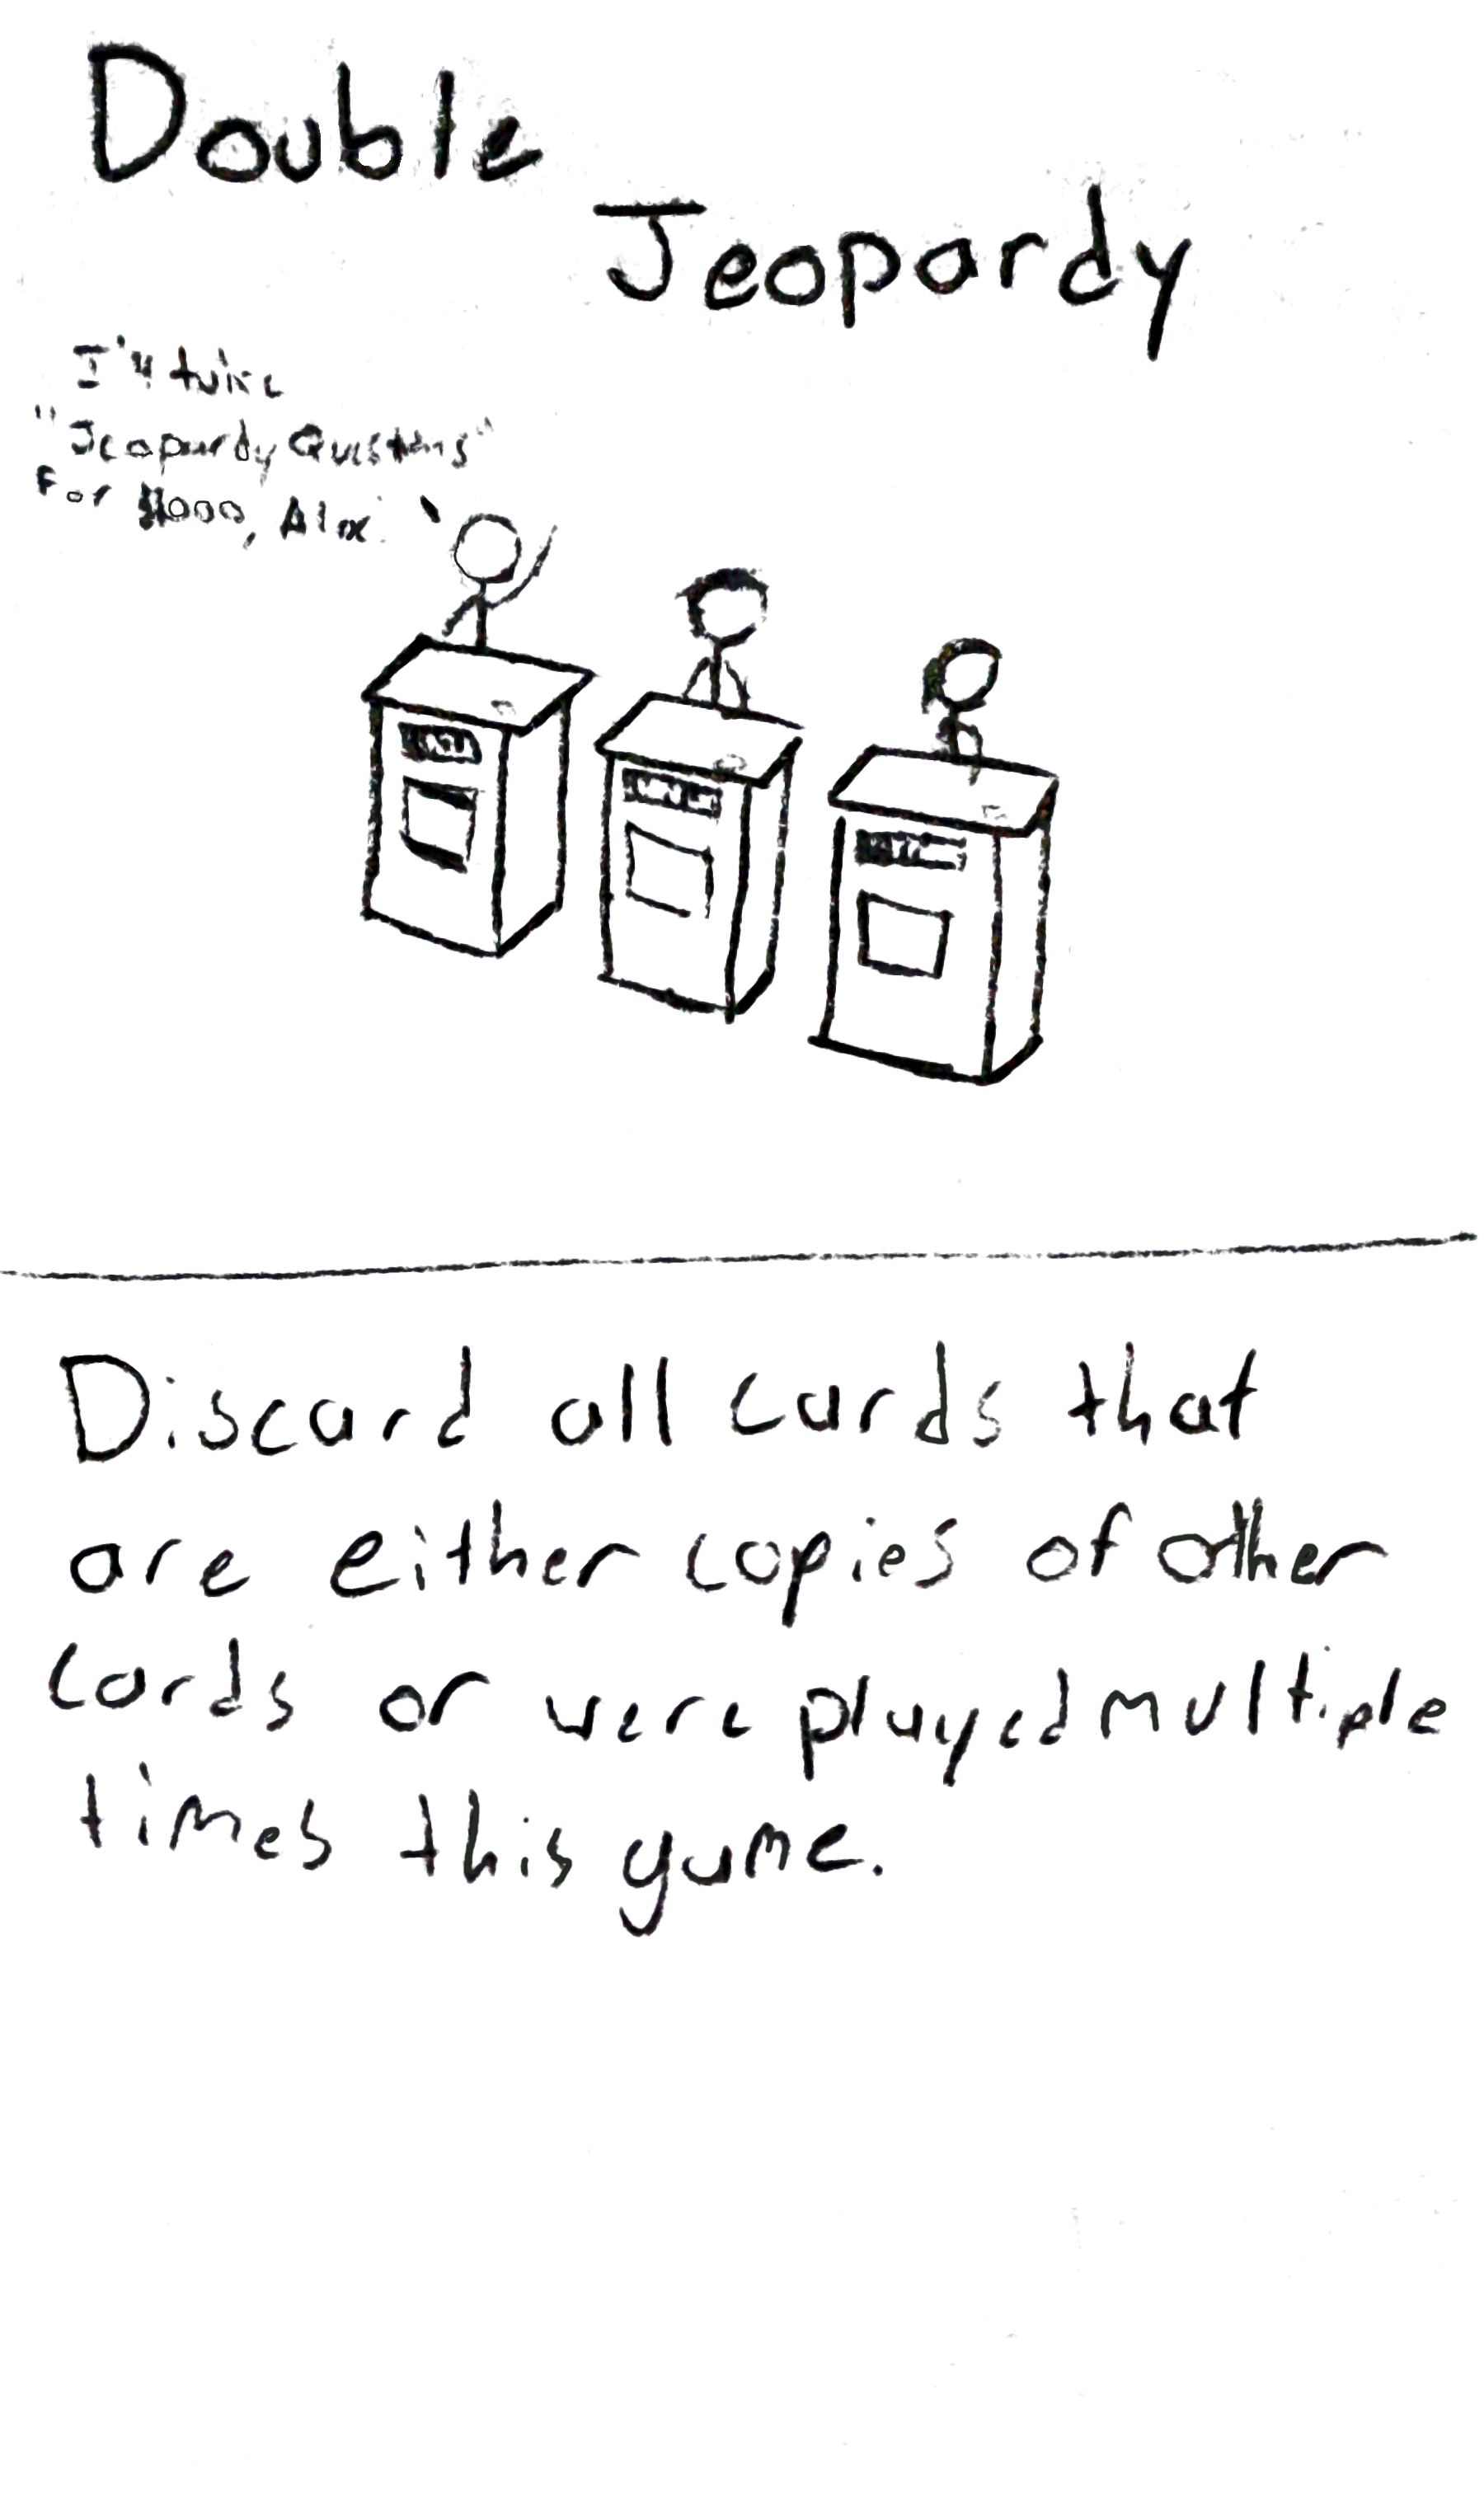 Double
Jeopardy
I'll take
"Jeopardy Questions"
For $1000, Alex.
Discard all cards that
are either copies of other
cards or were played multiple
times this game.